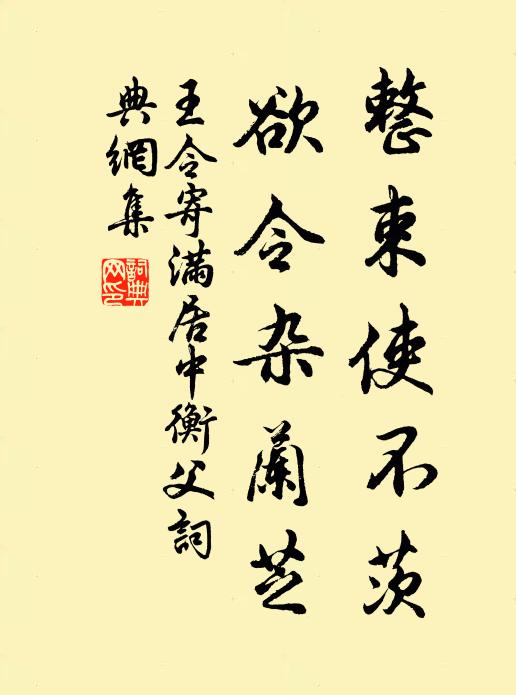 整束使不茨
欲令杂蘭芝
王令寄滿居中衡父詞
典網集
詞典
网印